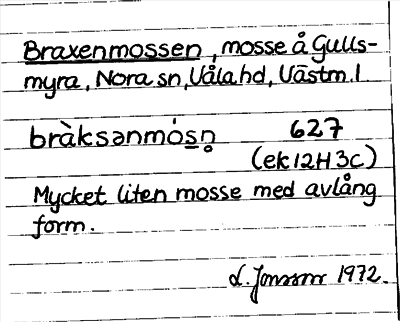 Braxenmossen, mosse å Gulls-
myra, Nora sn, Våla hd, Västm. l
bràksənmósn̥ 627
(ek 12H 3C)
Mycket liten mosse med avlång
form.
L. Jonsson 1972.